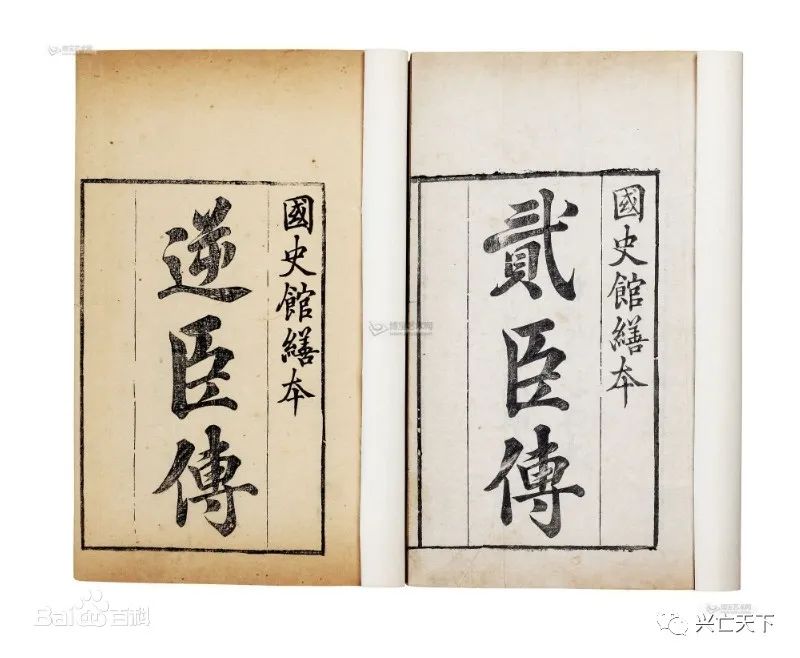 國史館繕本
貳臣傳
國史館繕本
逆臣傳
Bai百科
兴亡天下